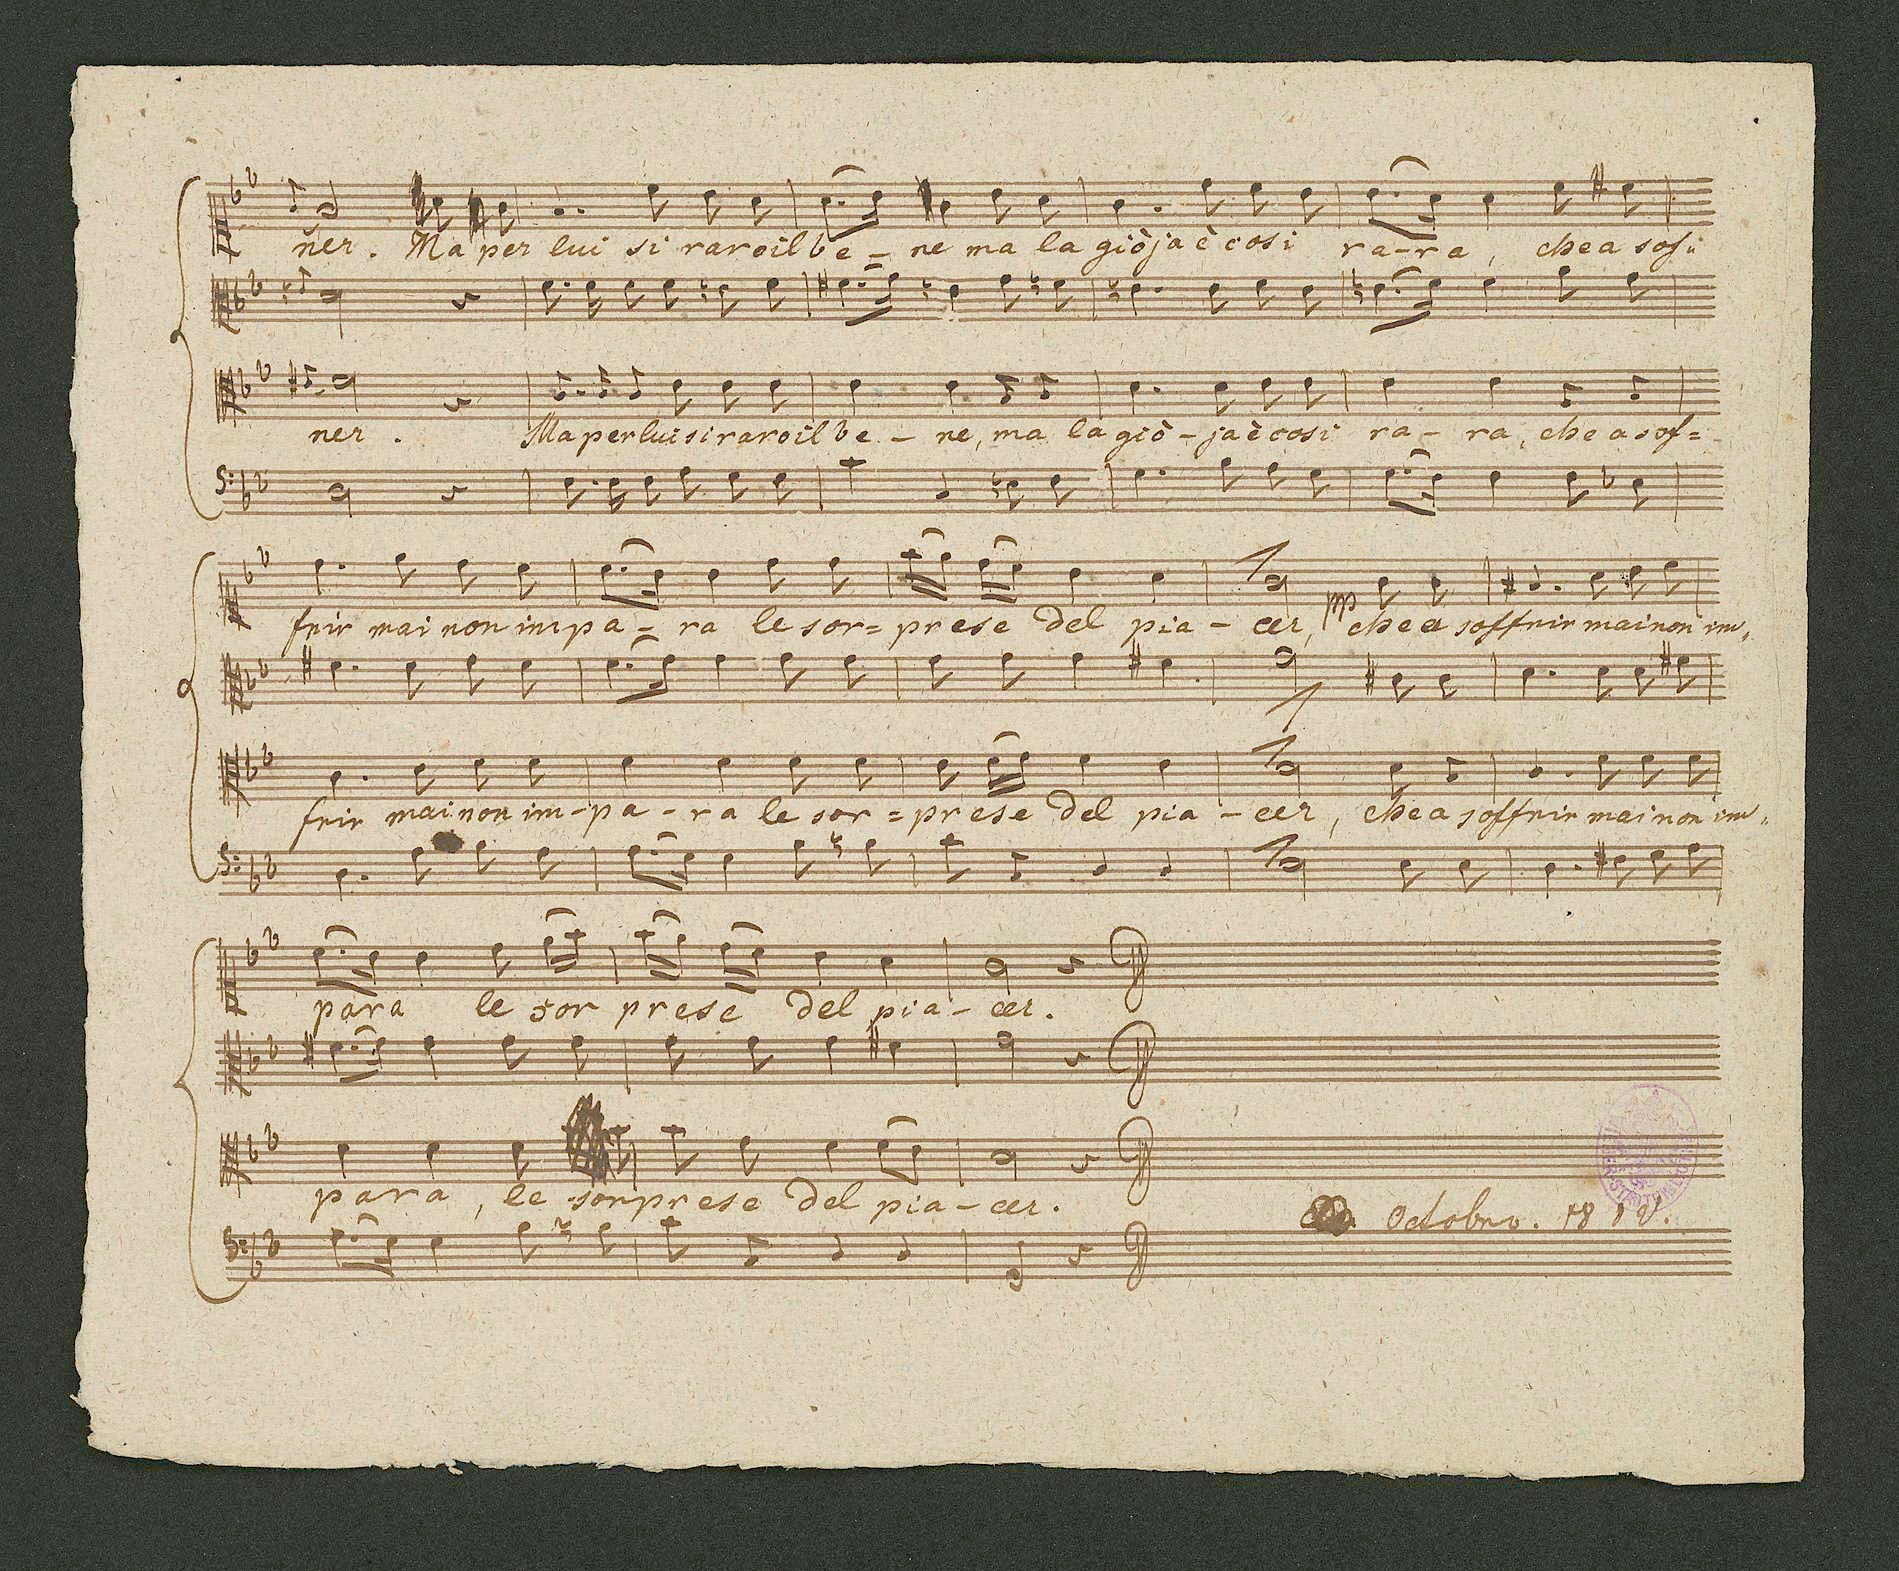 ner. Ma per lui si raro il be - ne ma la giòja è cosi ra - ra, che a sof:
ner. Ma per lui si raro il be - ne, ma la giò - ja è cosi ra - ra, che a sof=
frir mai non impa - ra le sor= prese del pia - cer, pp che a soffrir mai non im„
frir mai non im - pa - ra le sor = prese del pia - cer, che a soffrir mai non im„
para le sor prese del pia - cer.
para, le sorprese del pia - cer.